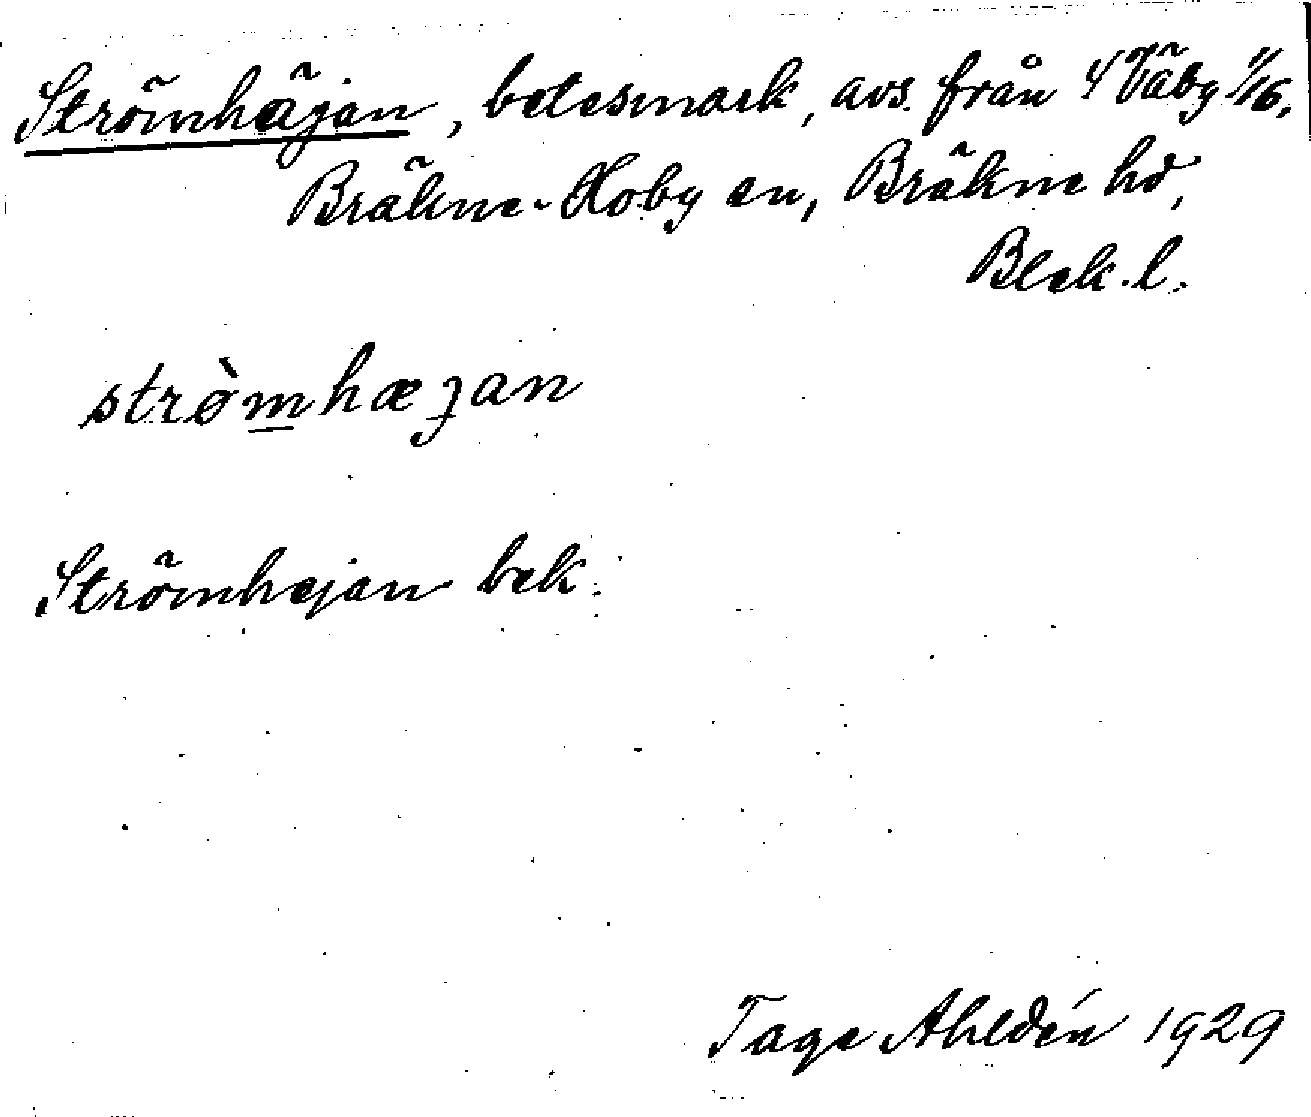 Strömhäjan, betesmark, avs. från 4 Väby 1/16.
Bräkne-Hoby sn, Bräkne hd,
Blek.l.
strø̀mhæjan
Strömhejan bek.
Tage Ahldén 1929